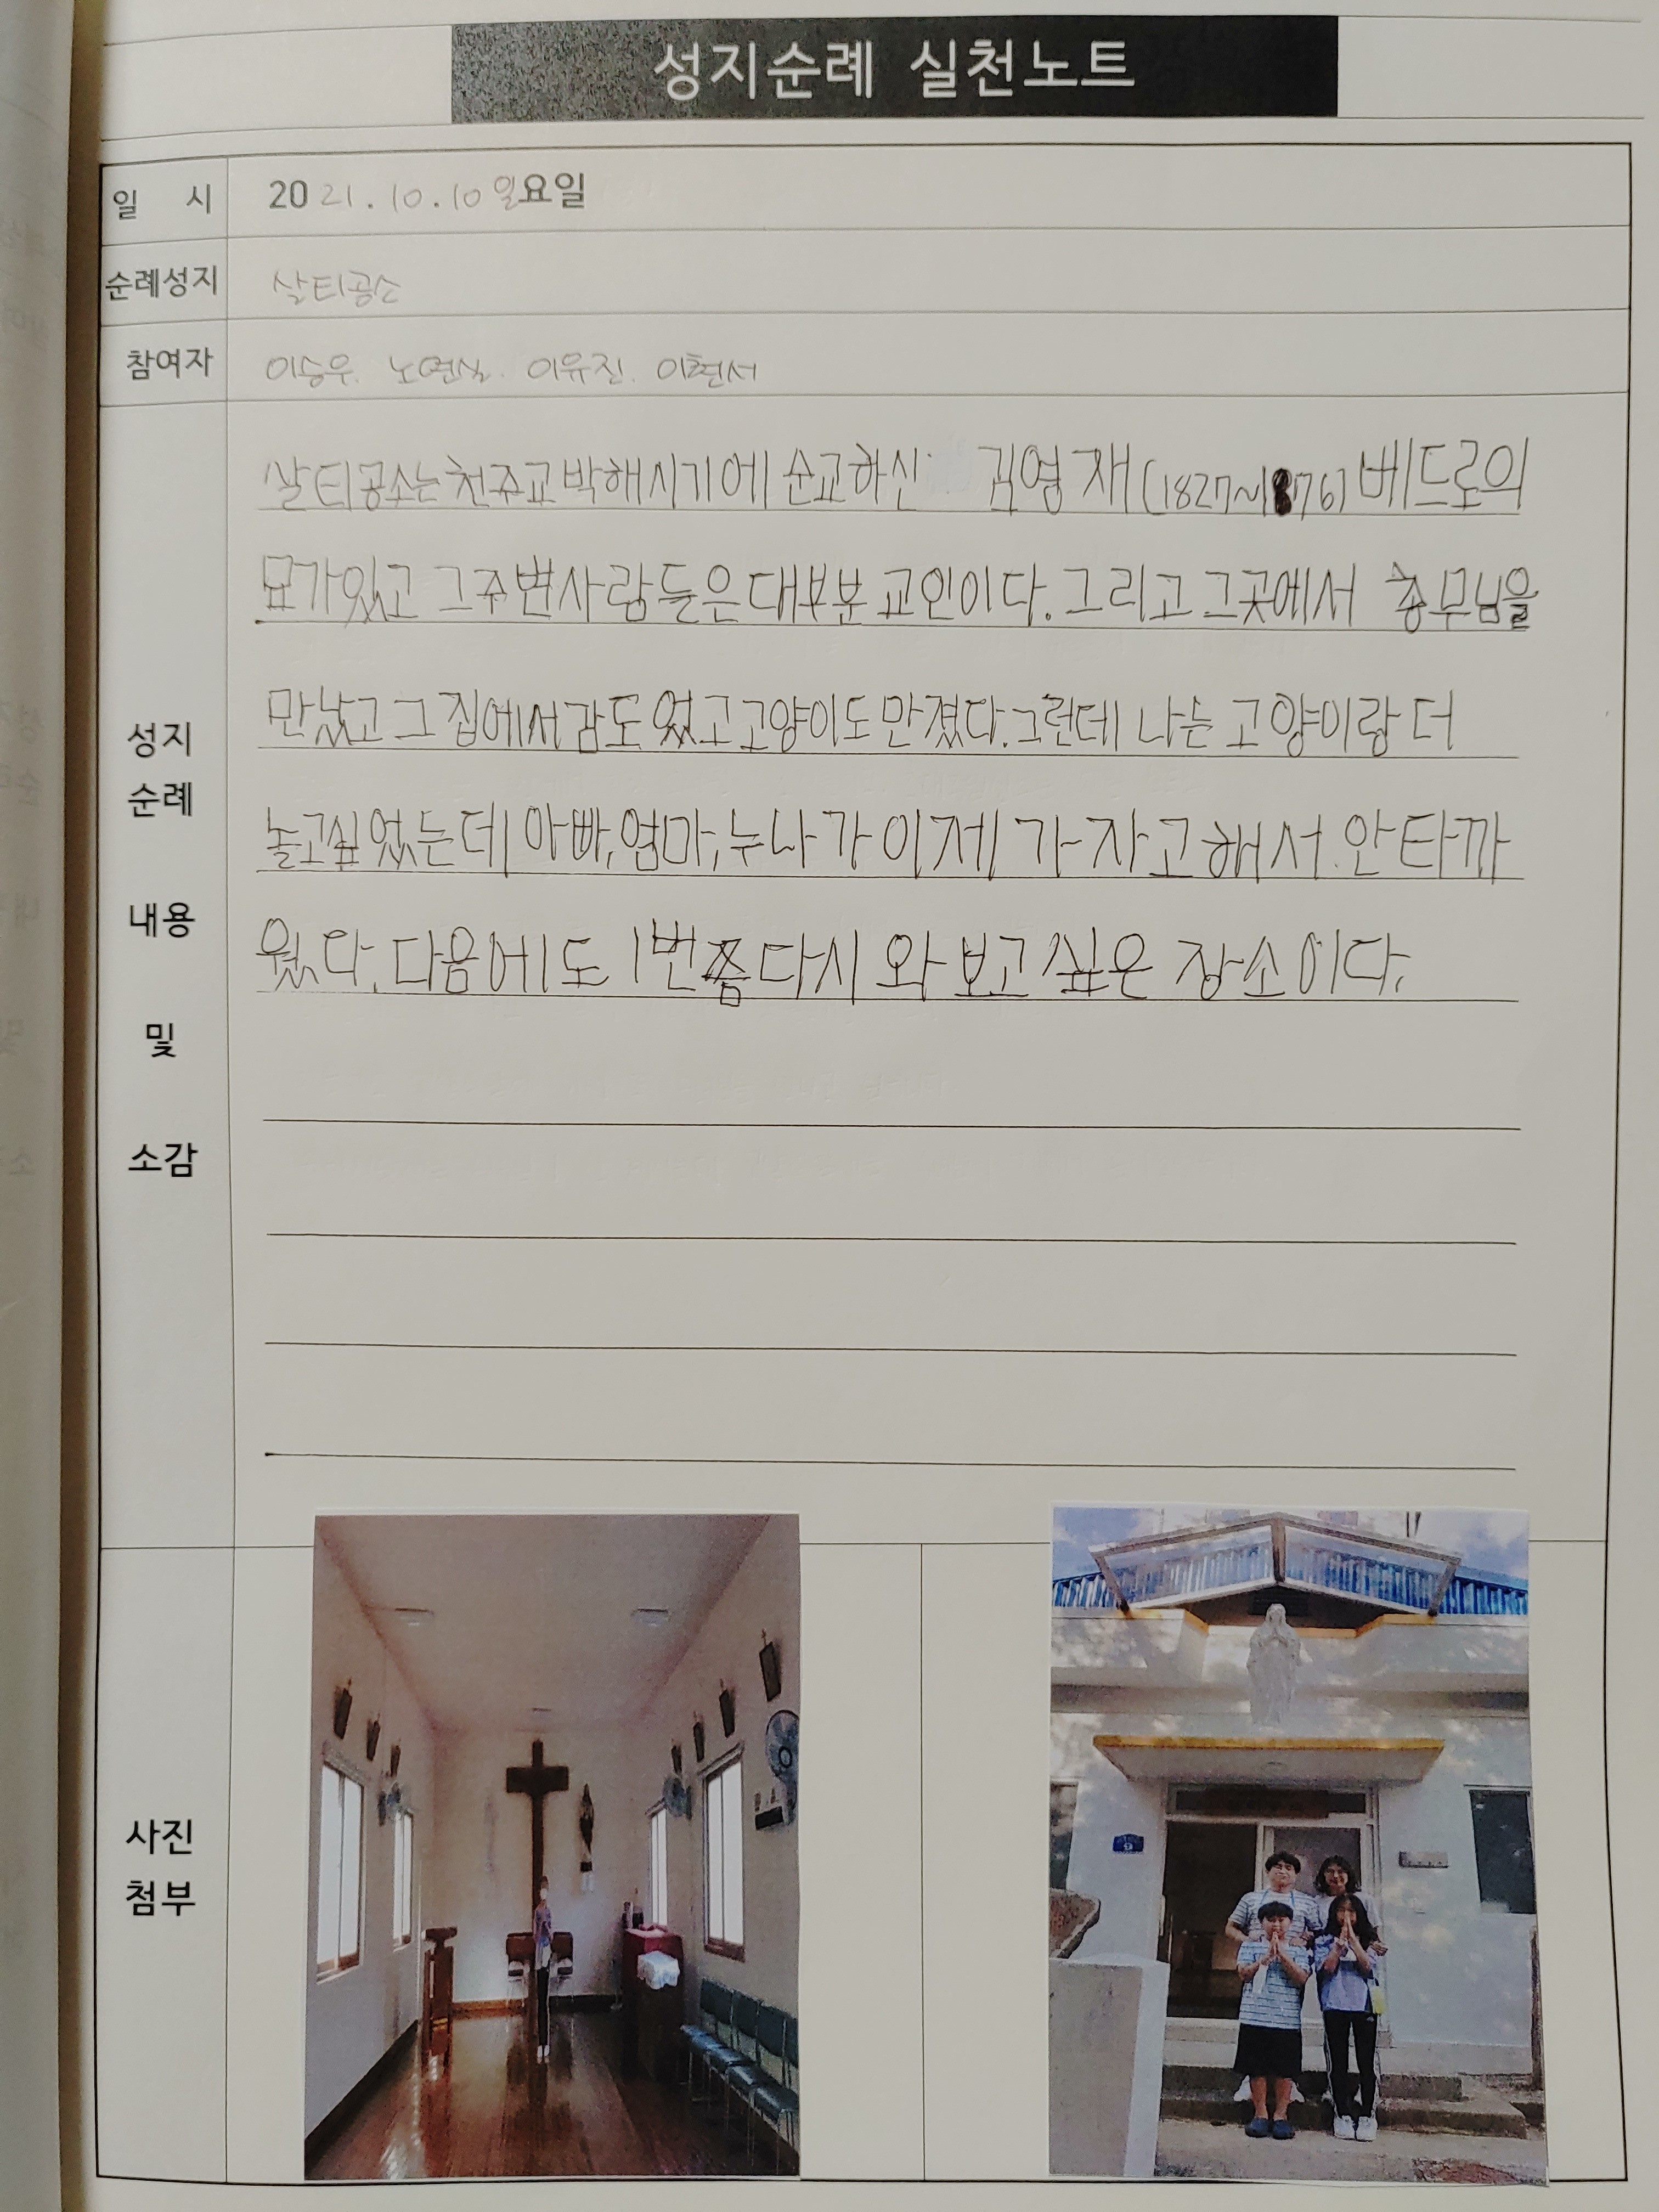 성지순례 실천노트
일 시 2021.10.10 일요일
순례성지 살티공소
참여자 이승우. 노연실. 이유진. 이현서
살티공소는 천주교 박해시기에 순교하신 김영재(1827~1876) 베드로의
묘가있고 그주변사람들은 대부분 교인이다. 그리고 그곳에서 총무님을
만났고 그 집에서 감도 얻고 고양이도 만졌다. 그런데 나는 고양이랑 더
놀고싶었는데 아빠, 엄마, 누나가 이제 가자고 해서 안타까
웠다. 다음에도 1번쯤 다시 와보고 싶은 장소이다.
성지
순례
내용
및
소감
사진
첨부
9